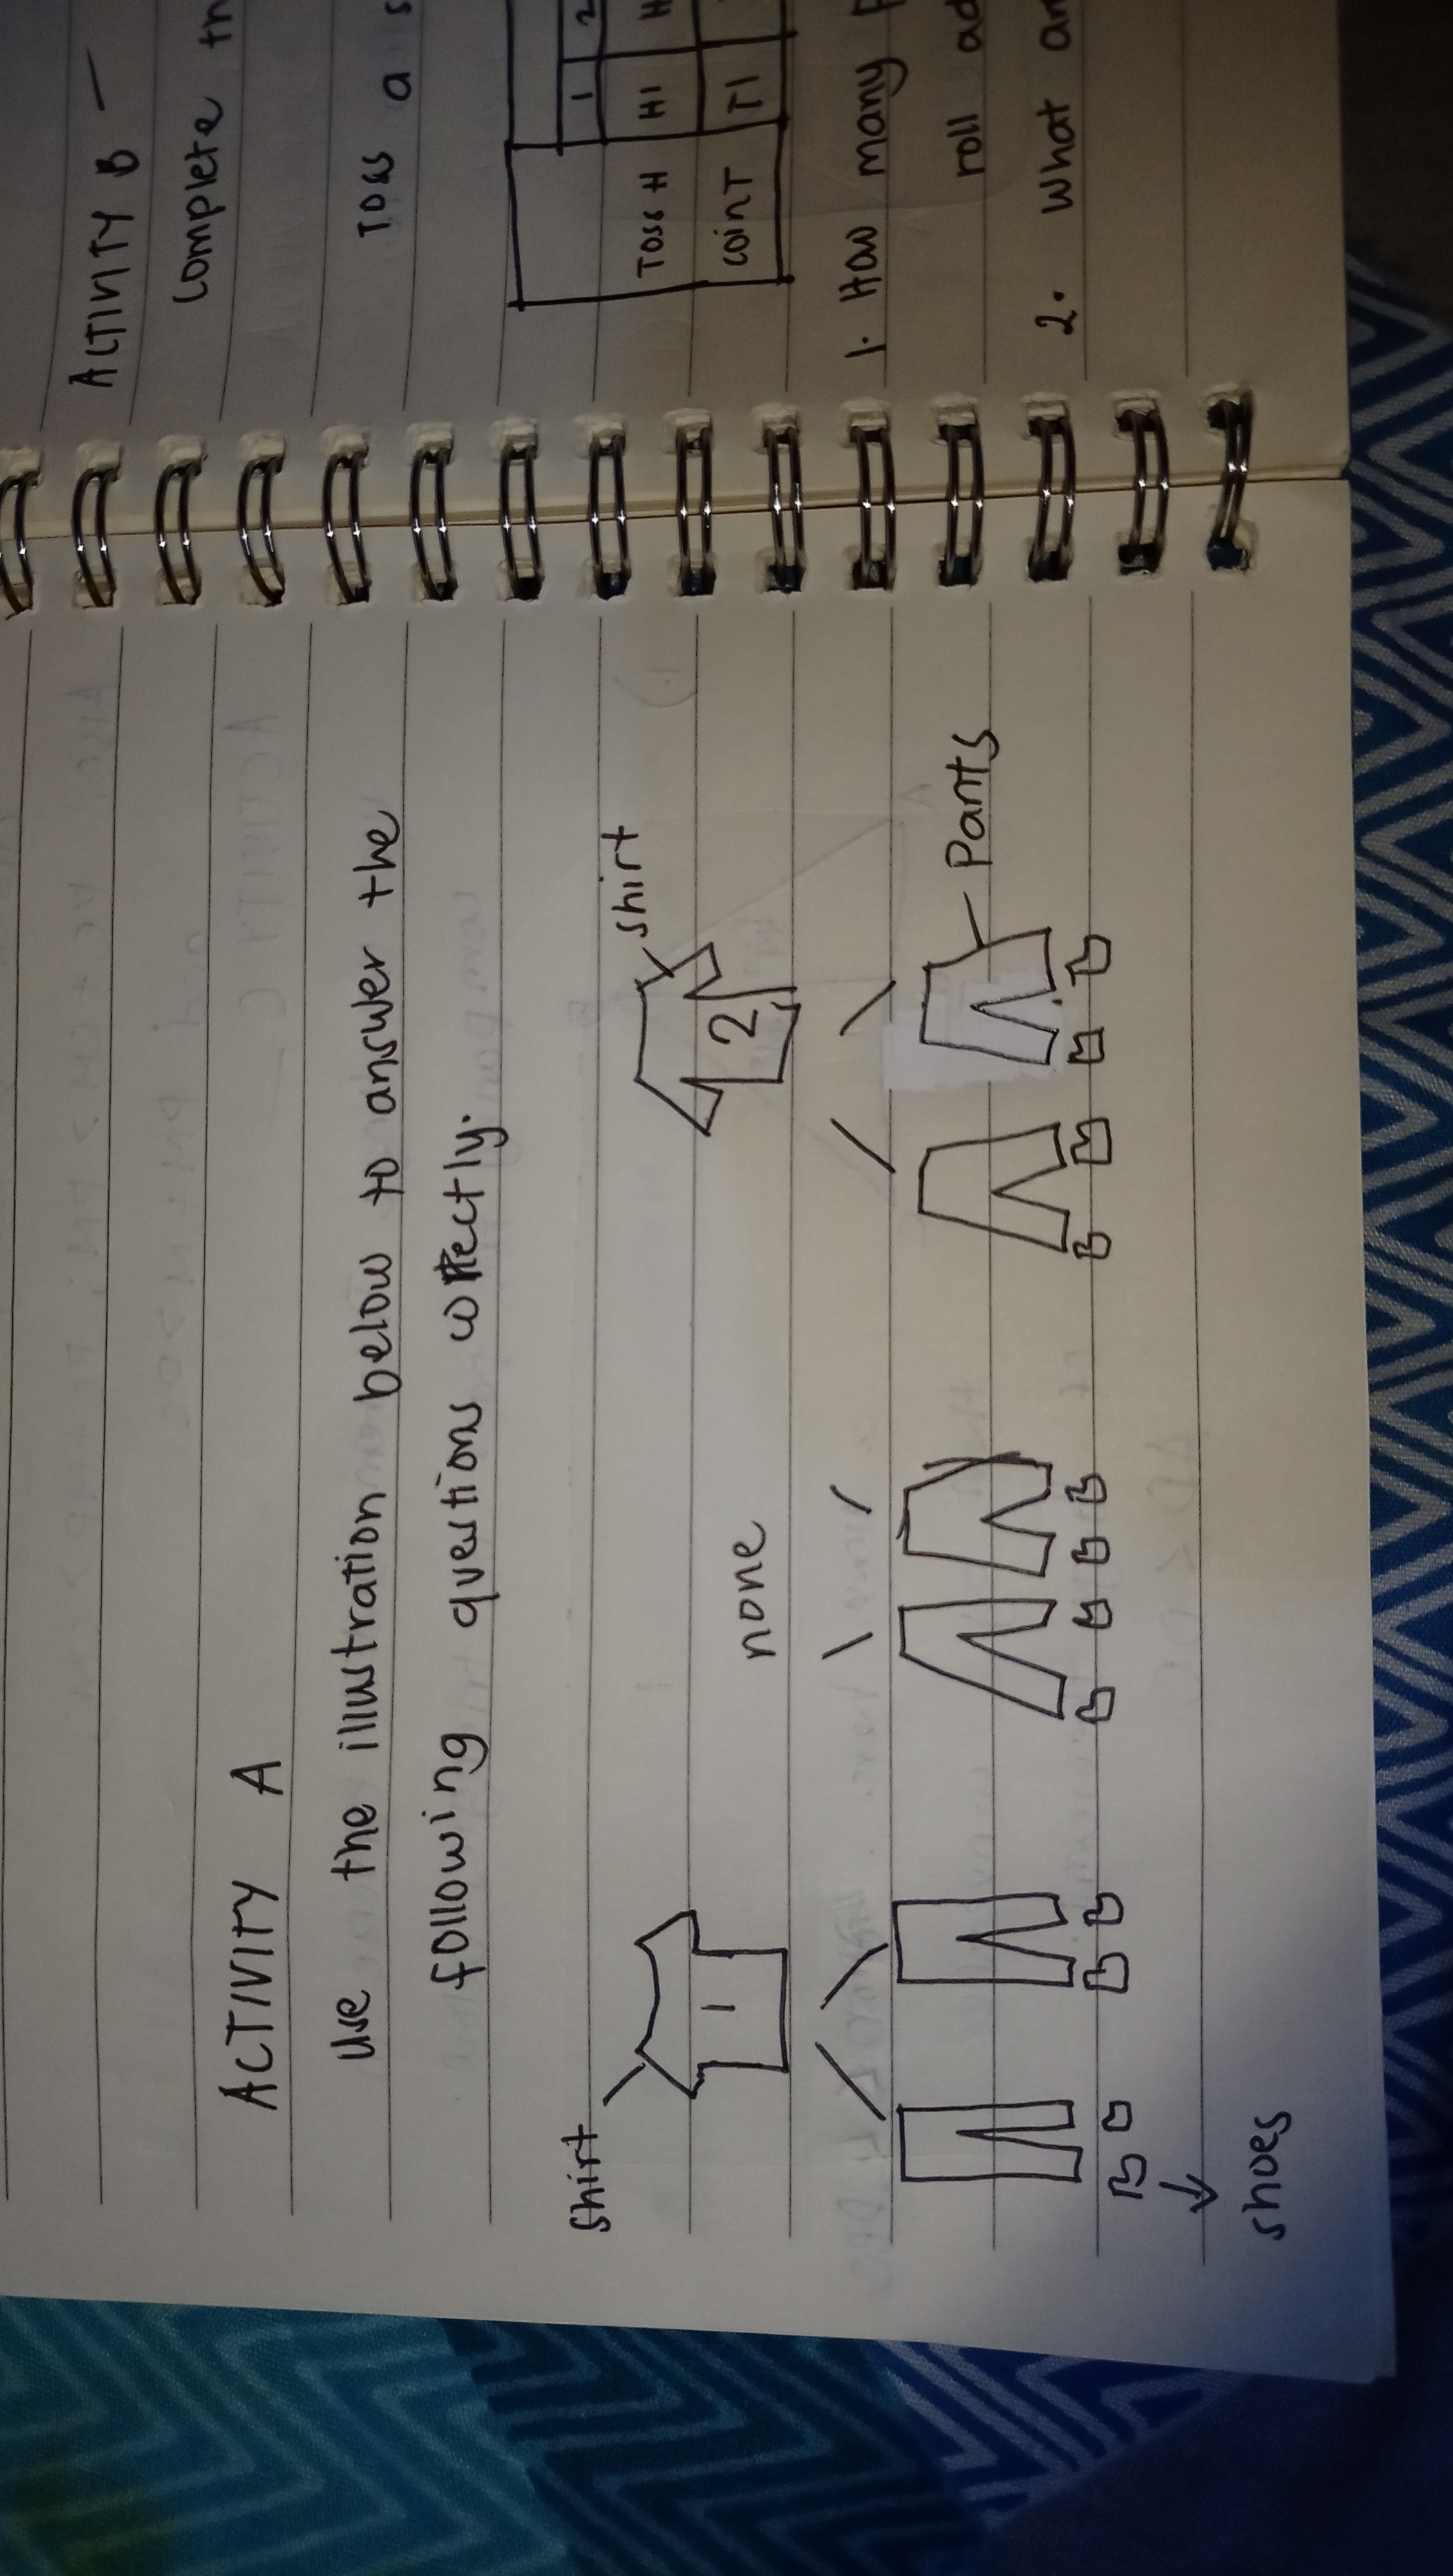 ACTIVITY A
Use the illustration below to answer the
following questions correctly.
shirt
shirt
1
none
2
Pants
shoes
ACTIVITY B —
Complete
Toss a
1 2
Toss H H1
Coin T T1
1. How many
roll
2. What